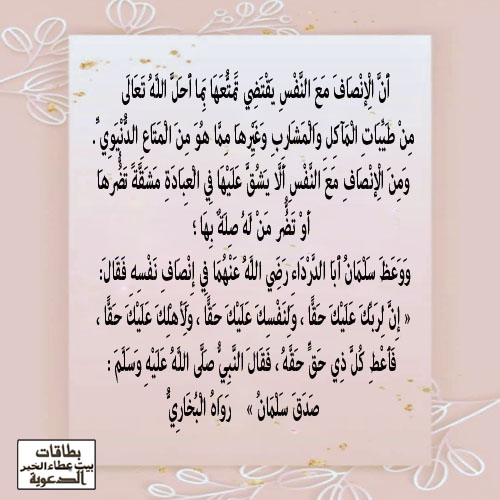 أنَّ الْإِنْصَافَ مَعَ النَّفْسِ يَقْتَضِي تَمَتُّعَهَا بِمَا أحَلَّ اللَّهُ تَعَالَى
مِنْ طَيِّبَاتِ الْمَآكِلِ وَالْمَشَارِبِ وَغَيْرِهَا مِمَّا هُوَ مِنَ الْمَتَاعِ الدُّنْيَوِيِّ.
وَمِنَ الْإِنْصَافِ مَعَ النَّفْسِ ألَّا يَشُقَّ عَلَيْهَا فِي الْعِبَادَةِ مَشَقَّةً تَضُرُّهَا
أوْ تَضُرُّ مَنْ لَهُ صِلَةٌ بِهَا ؛
وَوَعَظَ سَلْمَانُ أبَا الدَّرْدَاء رَضَي اللَّهُ عَنْهُمَا فِي إنْصَافِ نَفْسِهِ فَقَالَ:
« إِنَّ لِرَبِّكَ عَلَيْكَ حَقًّا ، وَلِنَفْسِكَ عَلَيْكَ حَقًّا ، وَلَأهْلِكَ عَلَيْكَ حَقًّا ،
فَأعْطِ كُلَّ ذِي حَقٍّ حَقَّهُ ، فَقَالَ النَّبِيُّ صَلَّى اللَّهُ عَلَيْهِ وَسَلَّمَ :
صَدَقَ سَلْمَانُ » رَوَاهُ الْبُخَارِيُّ
بطاقات
بيت عطاء الخير
الدعوية